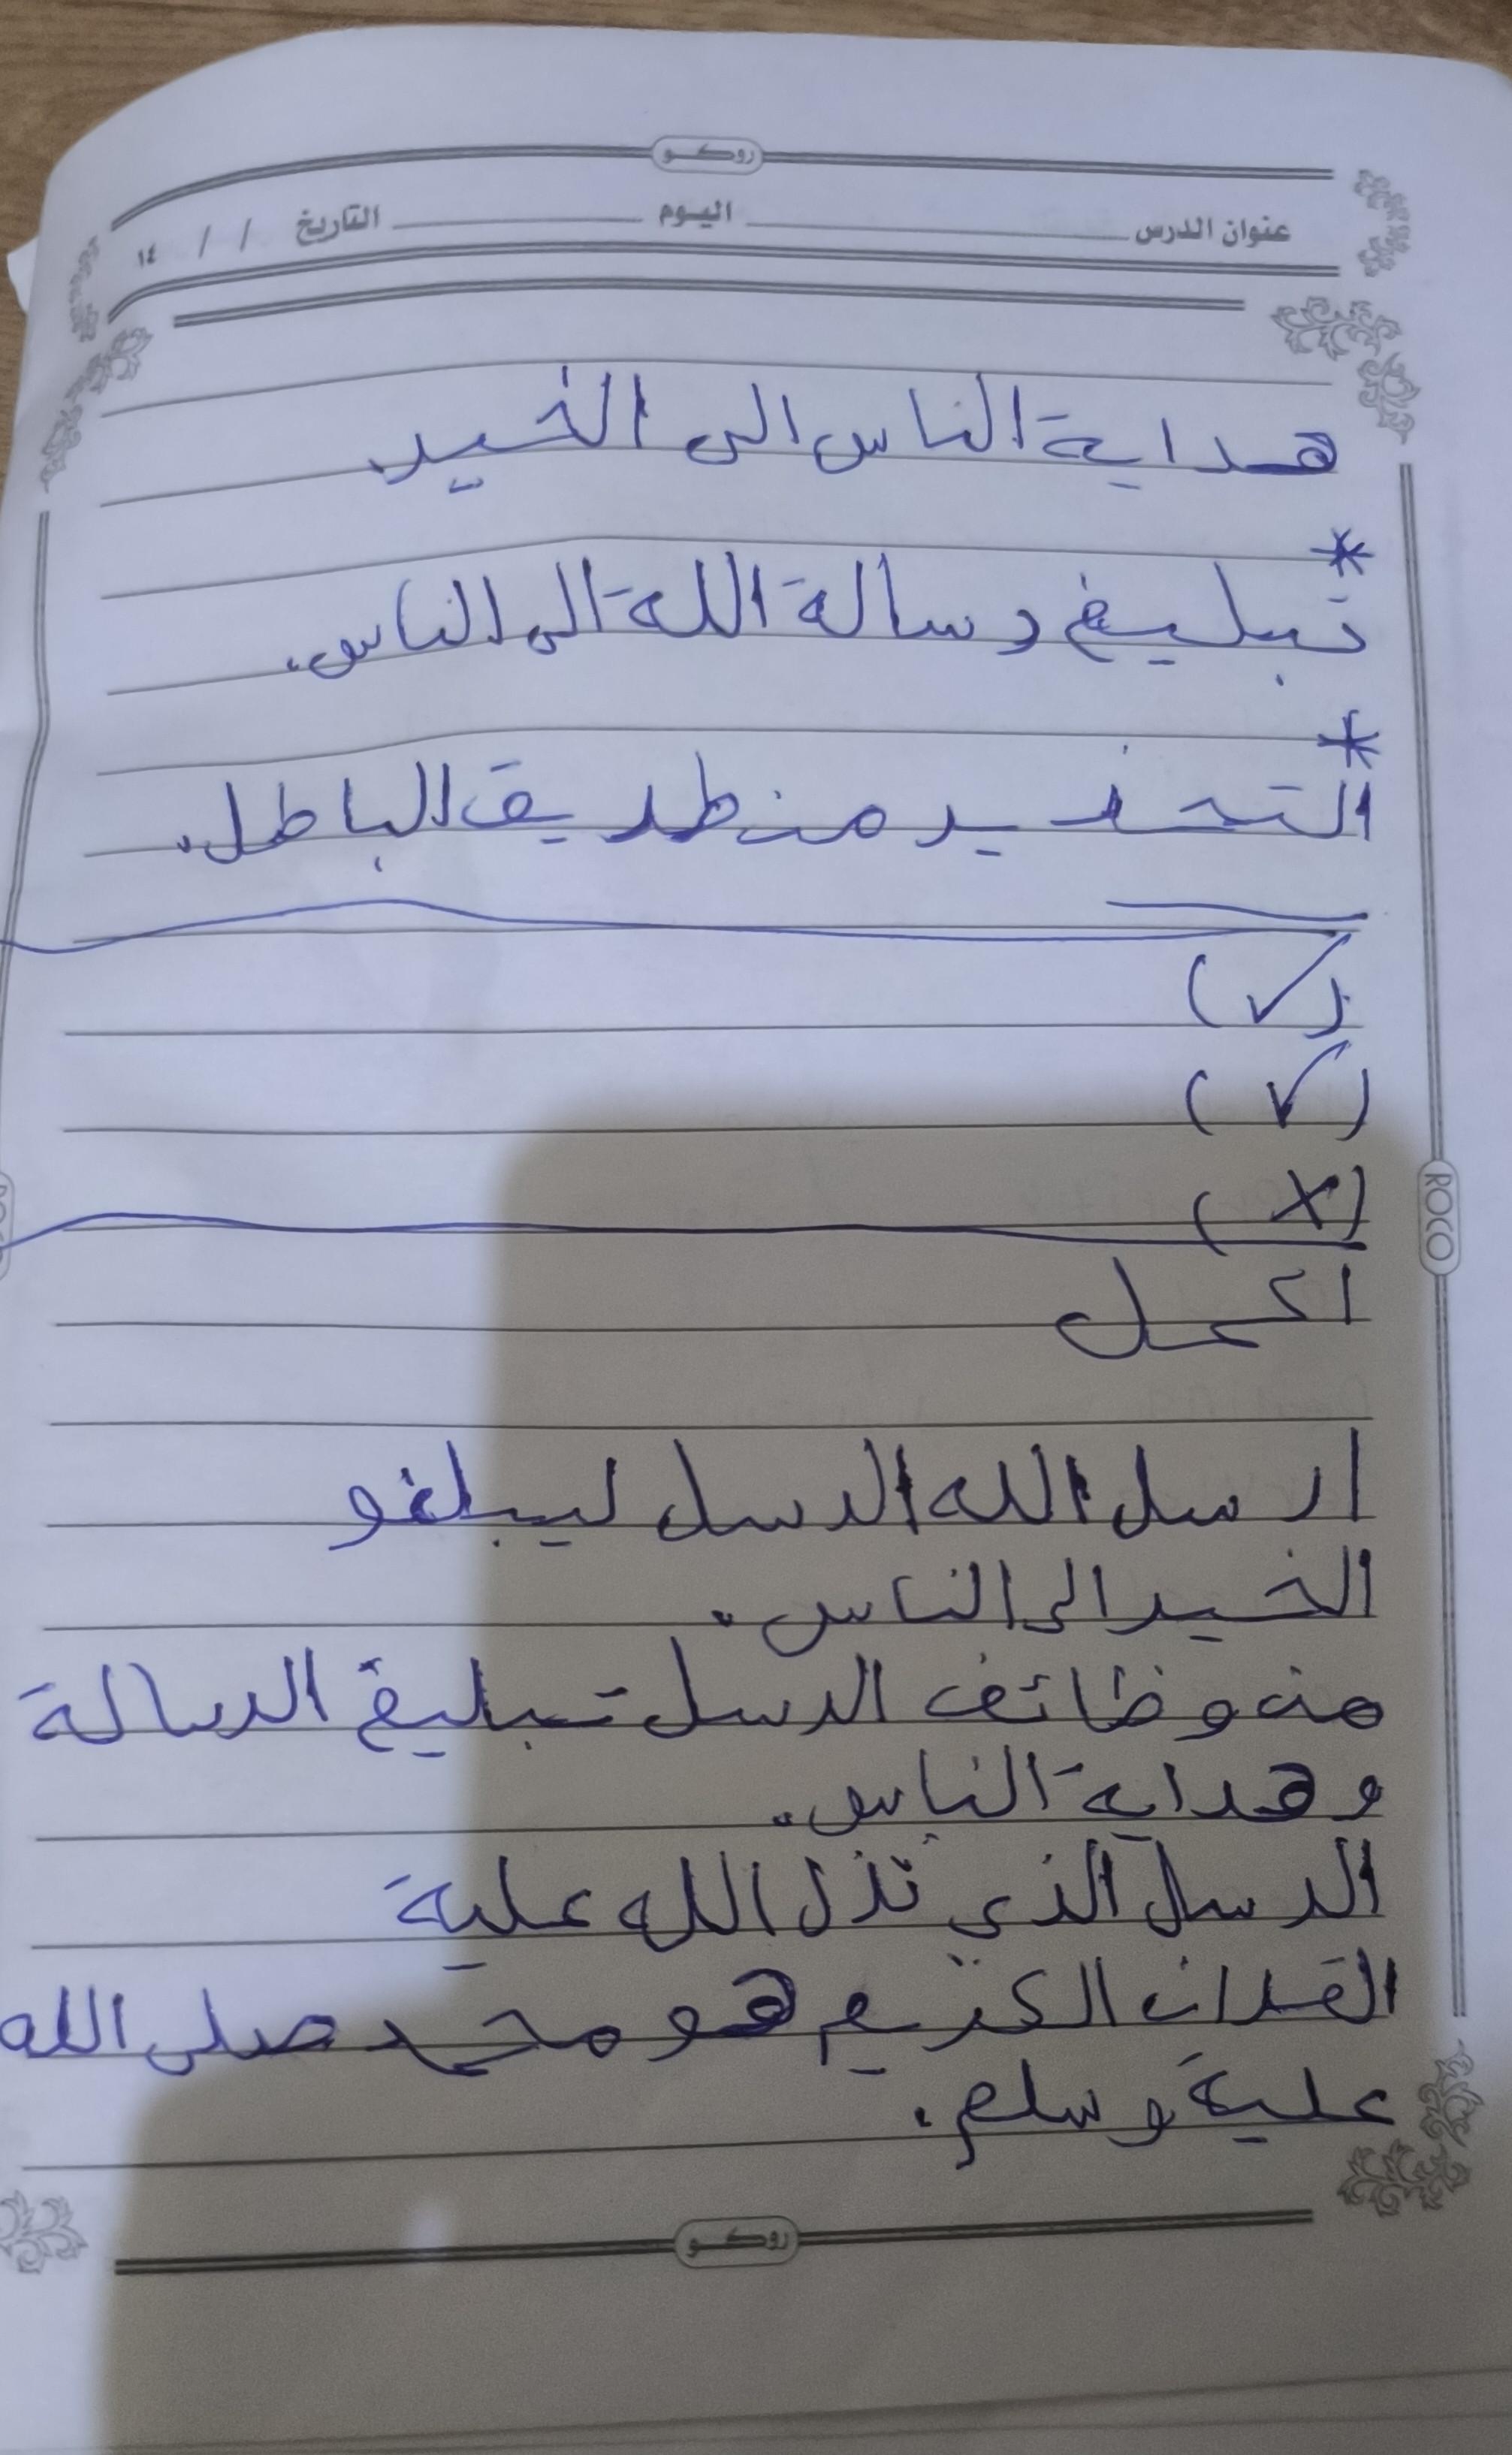 روكو
عنوان الدرس اليوم التاريخ / / ١٤
هداية الناس الى الخير
*
تبليغ رسالة اللة الى الناس.
*
التحذير من طريق الباطل.
(✓)
(✓)
(X)
اكمل
ارسل الله الرسل ليبلغو
الخير الى الناس.
من وظائف الرسل تبليغ الرسالة
وهداية الناس.
الرسل الذي نزل الله علية
القران الكريم هو محمد صلى الله
علية وسلم.
ROCO
روكو